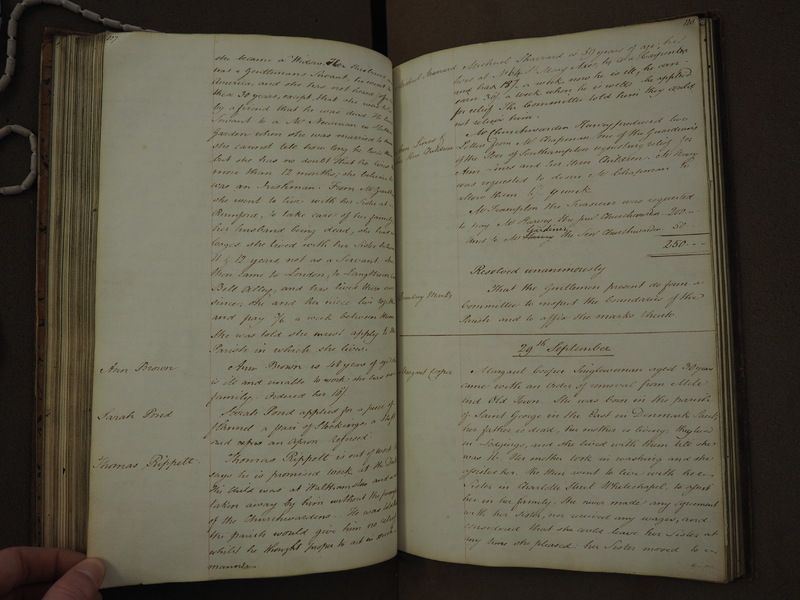 117
she became a Widow. Her Husband
was a Gentlemans Servant, he went to
America, and she has not heard of
these 30 years, except, that she was told
by a friend that he was dead. He was
Servant to a Mr Newman in
Garden when she was married to him
she cannot tell how long he lived there
but she has no doubt that he was
more than 12 months; she believes he
was an Irishman. From Mr
she went to live with her Sister at
Rumford, to take care of her family
her husband being dead, she had no
wages she lived with her Sister between
11 & 12 years not as a Servant. She
then came to London, to Langthorn
Bell Alley, and has lived there ever
since; she and her niece live together
and pay a week between them.
She was told she must apply to the
Parish in which she lives.
Ann Brown
Ann Brown is 48 years of age
is ill and unable to work: she has no
family. Ordered her 10/.
Sarah Pond
Sarah Pond applied for a piece of
flannel a pair of Stockings, a Shift
and an Apron refused.
Thomas Rippett.
Thomas Rippett is out of work he
says he is promised work at the
His child was at Walthamstow and was
taken away by him without the
of the Churchwardens. He was told
the parish would give him no relief
whilst he thought proper to act in such a
manner.
118
Michael Sharrard
Michael Sharrard is 50 years of age, he
lives at No 64 he is a Carpenter
and has 18/. a week, now he is ill; he can
earn 30/ a week when he is well. He applied
for relief. The Committee told him they could
not relieve him.
Ann Lines &
her three Children
Mr Churchwarden Harvey produced two
Letters from Mr Chapman one of the Guardians
of the Poor of Southampton requesting relief for
Ann Lines and her three Children. Mr Harvey
was requested to desire Mr Chapman to
allow them 6/. week
Mr Frampton the Treasurer was requested
to pay Mr Harvey the Churchwarden 200 --
and to Mr Gardiner the Sen Churchwarden 50 --
250 --
Resolved unanimously
Boundary Marks
That the Gentlemen present do form a
Committee to inspect the boundaries of the
Parish and to affix the marks thereto
29th September
Margaret Cooper
Margaret Cooper Singlewoman aged 30 years
came with an Order of removal from Mile
End Old Town. She was born in the parish
of Saint George in the East in Denmark Street;
her father is dead, her mother is living; they lived
in Lodgings, and she lived with them till she
was 14. Her mother took in washing and she
assisted her. She then went to live with her
Sister in Charlotte Street Whitechapel to assist
her in her family. She never made any agreement
with her Sister, nor received any wages, and
considered that she could leave her Sister at
any time she pleased. her Sister moved to